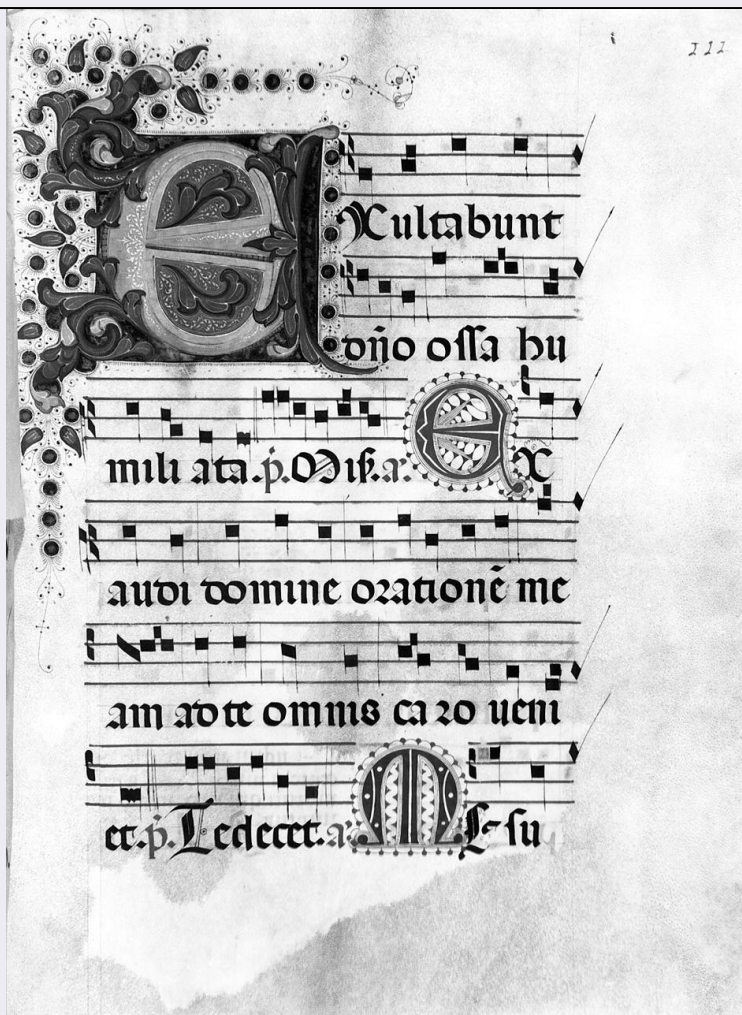 111
EXultabunt
dn̄o ossa hu
mili ata.p̄.Miſ̄.a. EX
audi domine orationē me
am ad te omnis ca ro ueni
et.p̄.Te decet.a. ME su